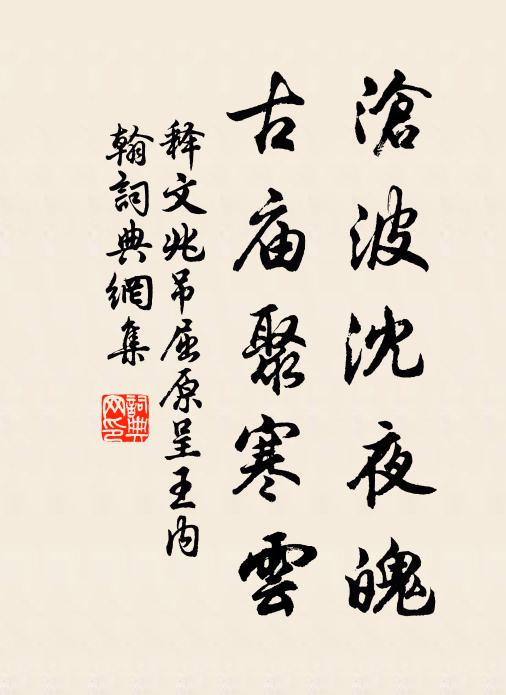 滄波沈夜魄
古庙聚寒雲
释文兆吊屈原呈王内
翰詞典網集
詞典网印